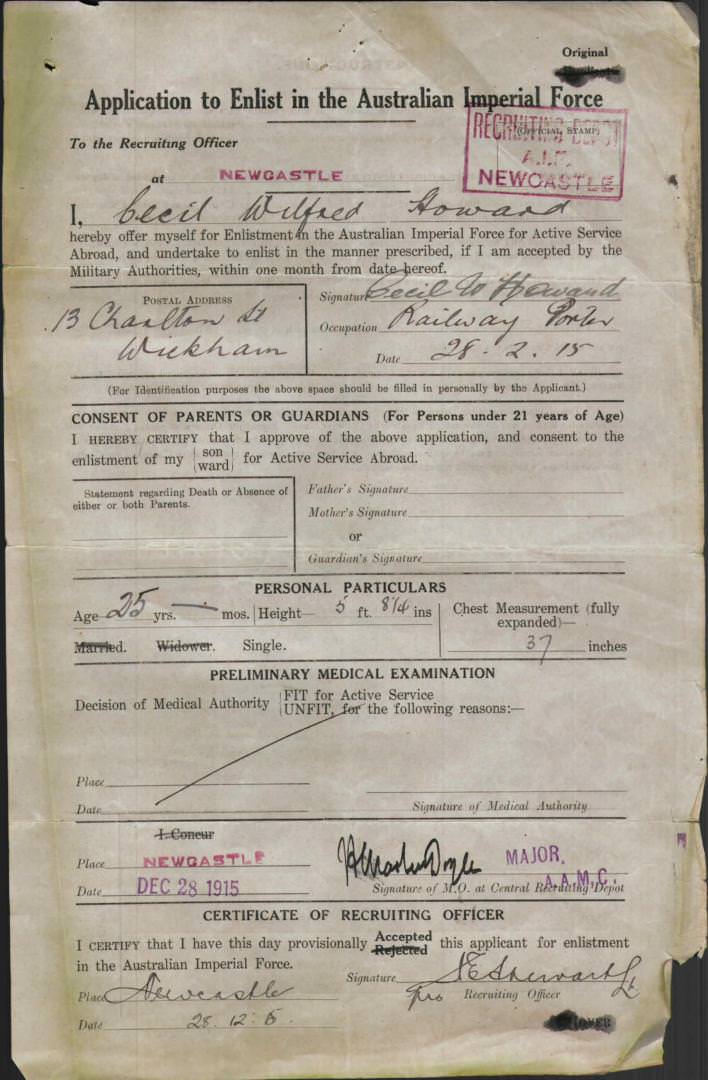 Original
Application to Enlist in the Australian Imperial Force
(OFFICIAL STAMP)
RECRUITING DEPOT
A.I.F.
NEWCASTLE
To the Recruiting Officer
at NEWCASTLE
I, Cecil Wilfred Howard
hereby offer myself for Enlistment in the Australian Imperial Force for Active Service
Abroad, and undertake to enlist in the manner prescribed, if I am accepted by the
Military Authorities, within one month from date hereof.
POSTAL ADDRESS
13 Charlton St
Wickham
Signature Cecil W Howard
Occupation Railway Porter
Date 28. 2. 15
(For Identification purposes the above space should be filled in personally by the Applicant.)
CONSENT OF PARENTS OR GUARDIANS (For Persons under 21 years of Age)
I HEREBY CERTIFY that I approve of the above application, and consent to the
enlistment of my son ward for Active Service Abroad.
Statement regarding Death or Absence of
either or both Parents.
Father's Signature
Mother's Signature
or
Guardian's Signature
PERSONAL PARTICULARS
Age 25 yrs. — mos. Height— 5 ft. 8 1/4 ins
Chest Measurement (fully
expanded)—
37 inches
Married. Widower. Single.
PRELIMINARY MEDICAL EXAMINATION
Decision of Medical Authority FIT for Active Service
UNFIT, for the following reasons:—
Place
Date
Signature of Medical Authority
I Concur
Place NEWCASTLE
Date DEC 28 1915
MAJOR,
A.A.M.C.
Signature of M.O. at Central Recruiting Depot
CERTIFICATE OF RECRUITING OFFICER
I CERTIFY that I have this day provisionally Accepted Rejected this applicant for enlistment
in the Australian Imperial Force.
Signature
Place Newcastle
pro Recruiting Officer
Date 28. 12. 5.